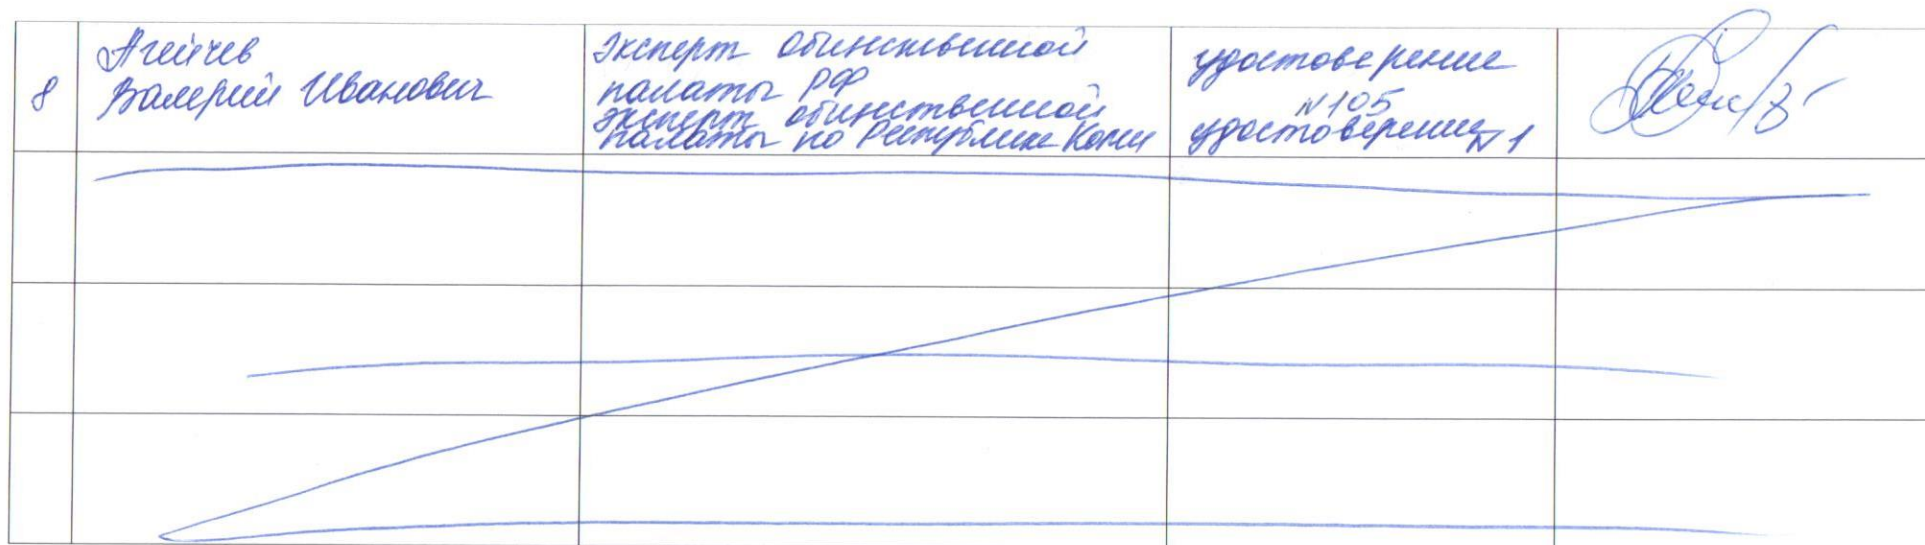 8
Агейчев
Валерий Иванович
Эксперт общественной
палаты РФ
эксперт общественной
палаты по Республике Коми
удостоверение
N105
удостоверение N1